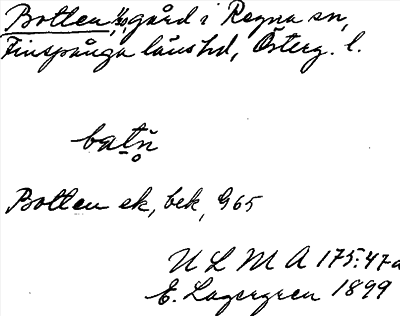 Botten, gård i Regna sn,
Finspånga läns hd, Österg. l.
batn̥
Botten ek, bek, G65
U L M A 175:47a
E. Lagergren 1899